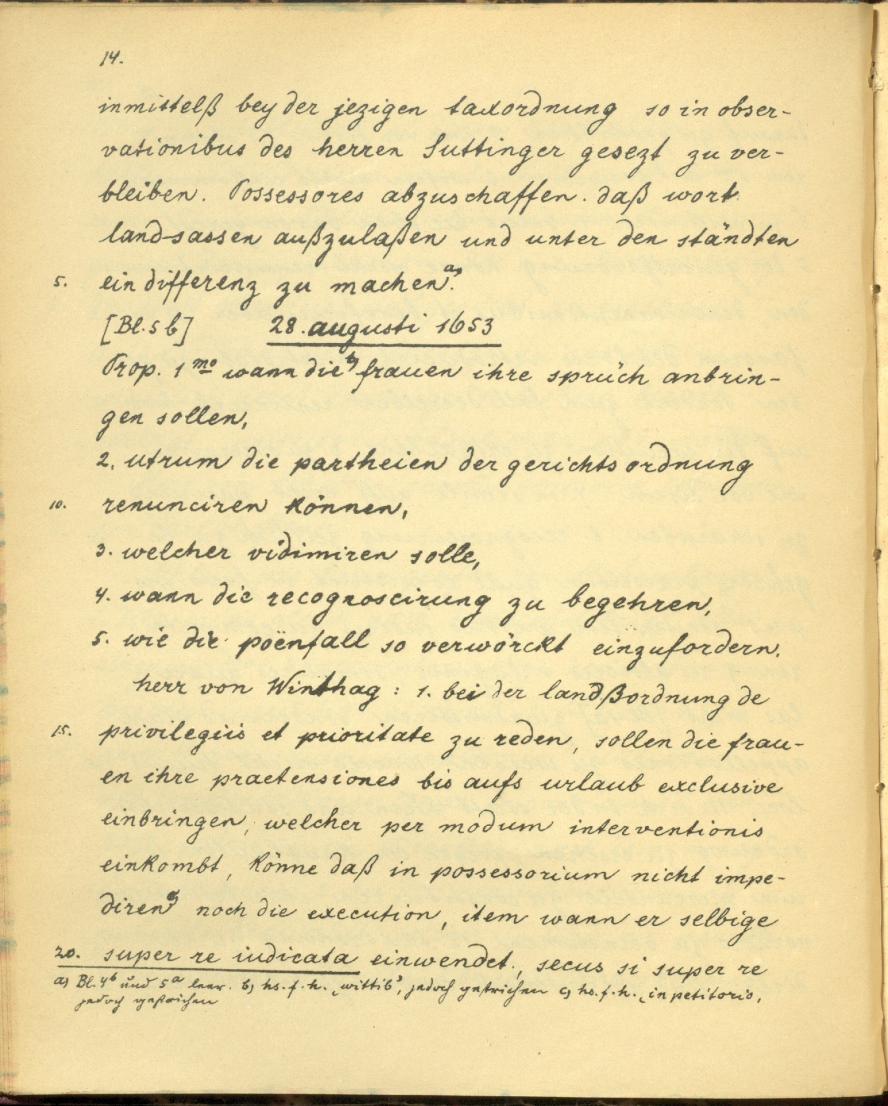 14.
inmittelß bey der jezigen taxordnung so in obser-
vationibus des herren Suttinger gesezt zu ver-
bleiben. Possessores abzuschaffen. daß wort
land-sassen außzulaßen und unter den ständten
5. ein differenz zu machen a).
[Bl. 5 b] 28. augusti 1653
Prop. 1 mo wann die b) frauen ihre sprüch anbrin-
gen sollen,
2. utrum die partheien der gerichtsordnung
10. renunciren können,
3. welcher vidimiren solle,
4. wann die recognoscirung zu begehren,
5. wie die poënfall so verwörckt einzufordern.
herr von Winthag: 1. bei der landßordnung de
15. privilegiis et prioritate zu reden, sollen die frau-
en ihre praetensiones bis aufs urlaub exclusive
einbringen, welcher per modum interventionis
einkombt, könne daß in possessorium nicht impe-
diren c) noch die execution, item wann er selbige
20. super re iudicata einwendet, secus si super re
a) Bl. 4b und 5a leer. b) hs. f. h. „wittib", jedoch gestrichen c) hs. f. h. „in petitorio,
jedoch gestrichen